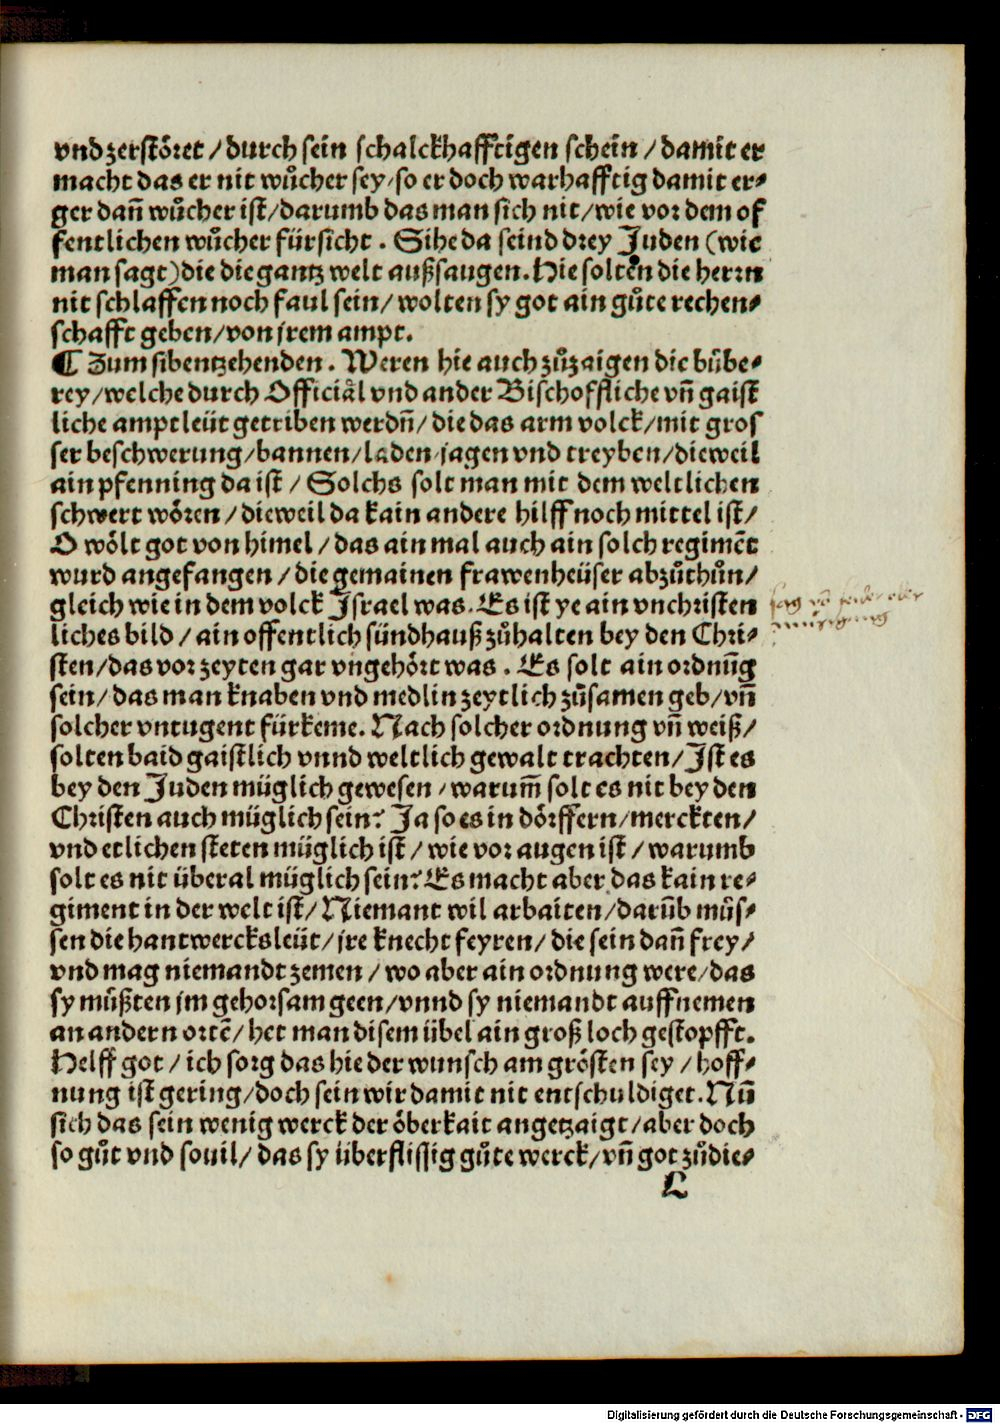 vnd zerstöret / durch sein schalckhafftigen schein / damit er
macht das er nit wůcher sey / so er doch warhafftig damit er⸗
ger dañ wůcher ist / darumb das man sich nit / wie vor dem of
fentlichen wůcher fürsicht . Sihe da seind drey Juden (wie
man sagt) die die gantz welt außsaugen. Hie solten die herrn
nit schlaffen noch faul sein / wolten sy got ain gůte rechen⸗
schafft geben / von jrem ampt.
¶ Zum sibentzehenden . Weren hie auch zůzaigen die bübe⸗
rey / welche durch Officiäl vnd ander Bischoffliche vñ gaist
liche amptleüt getriben werdñ / die das arm volck / mit gros
ser beschwerung / bannen / laden / jagen vnd treyben / dieweil
ain pfenning da ist / Solchs solt man mit dem weltlichen
schwert wören / dieweil da kain andere hilff noch mittel ist /
O wölt got von himel / das ain mal auch ain solch regimēt
wurd angefangen / die gemainen frawenheüser abzůthůn /
gleich wie in dem volck Israel was. Es ist ye ain vnchristen
liches bild / ain offentlich sündhauß zůhalten bey den Chri⸗
sten / das vor zeyten gar vngehört was . Es solt ain ordnūg
sein / das man knaben vnd medlin zeytlich zůsamen geb / vñ
solcher vntugent fürkeme. Nach solcher ordnung vñ weiß /
solten baid gaistlich vnnd weltlich gewalt trachten / Ist es
bey den Juden müglich gewesen / warum̃ solt es nit bey den
Christen auch müglich sein? Ja so es in dörffern / merckten /
vnd etlichen steten müglich ist / wie vor augen ist / warumb
solt es nit überal müglich sein? Es macht aber das kain re⸗
giment in der welt ist / Niemant wil arbaiten / darūb můs⸗
sen die hantwercksleüt / jre knecht feyren / die sein dañ frey /
vnd mag niemandt zemen / wo aber ain ordnung were / das
sy můßten jm gehorsam geen / vnnd sy niemandt auffnemen
an andern ortē / het man disem übel ain groß loch gestopfft.
Helff got / ich sorg das hie der wunsch am grösten sey / hoff⸗
nung ist gering / doch sein wir damit nit entschuldiget. Nū
sich das sein wenig werck der öberkait angetzaigt / aber doch
so gůt vnd souil / das sy überflissig gůte werck / vñ got zůdie⸗
L
Digitalisierung gefördert durch die Deutsche Forschungsgemeinschaft - DFG